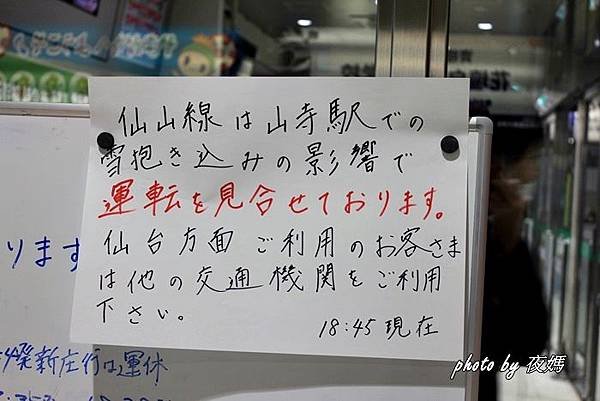 仙山線は山寺駅での
雪抱き込みの影響で
運転を見合せております。
仙台方面ご利用のお客さま
は他の交通機関をご利用
下さい。
18:45 現在
ります
新庄行は運休
photo by 夜媽